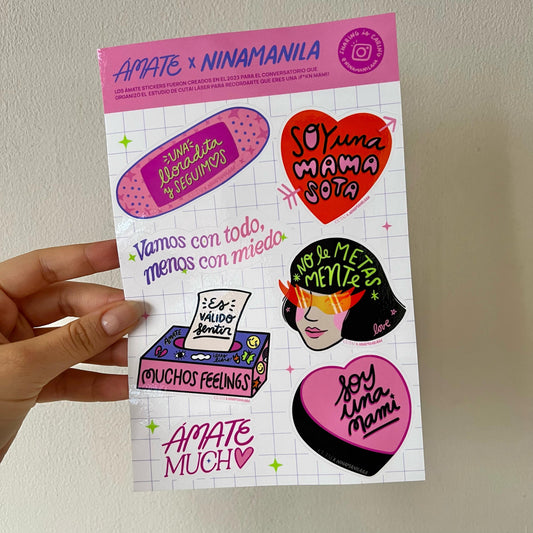 ÁMATE x NINAMANILA
LOS ÁMATE STICKERS FUERON CREADOS EN EL 2023 PARA EL CONVERSATORIO QUE
ORGANIZÓ EL ESTUDIO DE CUTAI LÁSER PARA RECORDARTE QUE ERES UNA ¡F*KN MAMI!
SHARING IS CARING
@NINAMANILAAA
UNA
lloradita
y SEGUIMOS
SOY una
MAMA
SOTA
Vamos con todo,
menos con miedo
NO le METAS
MENTE
love
ES
VÁLIDO
sentir
ÁMATE
MUCHOS FEELINGS
SOY
UNA
mami
ÁMATE
MUCH